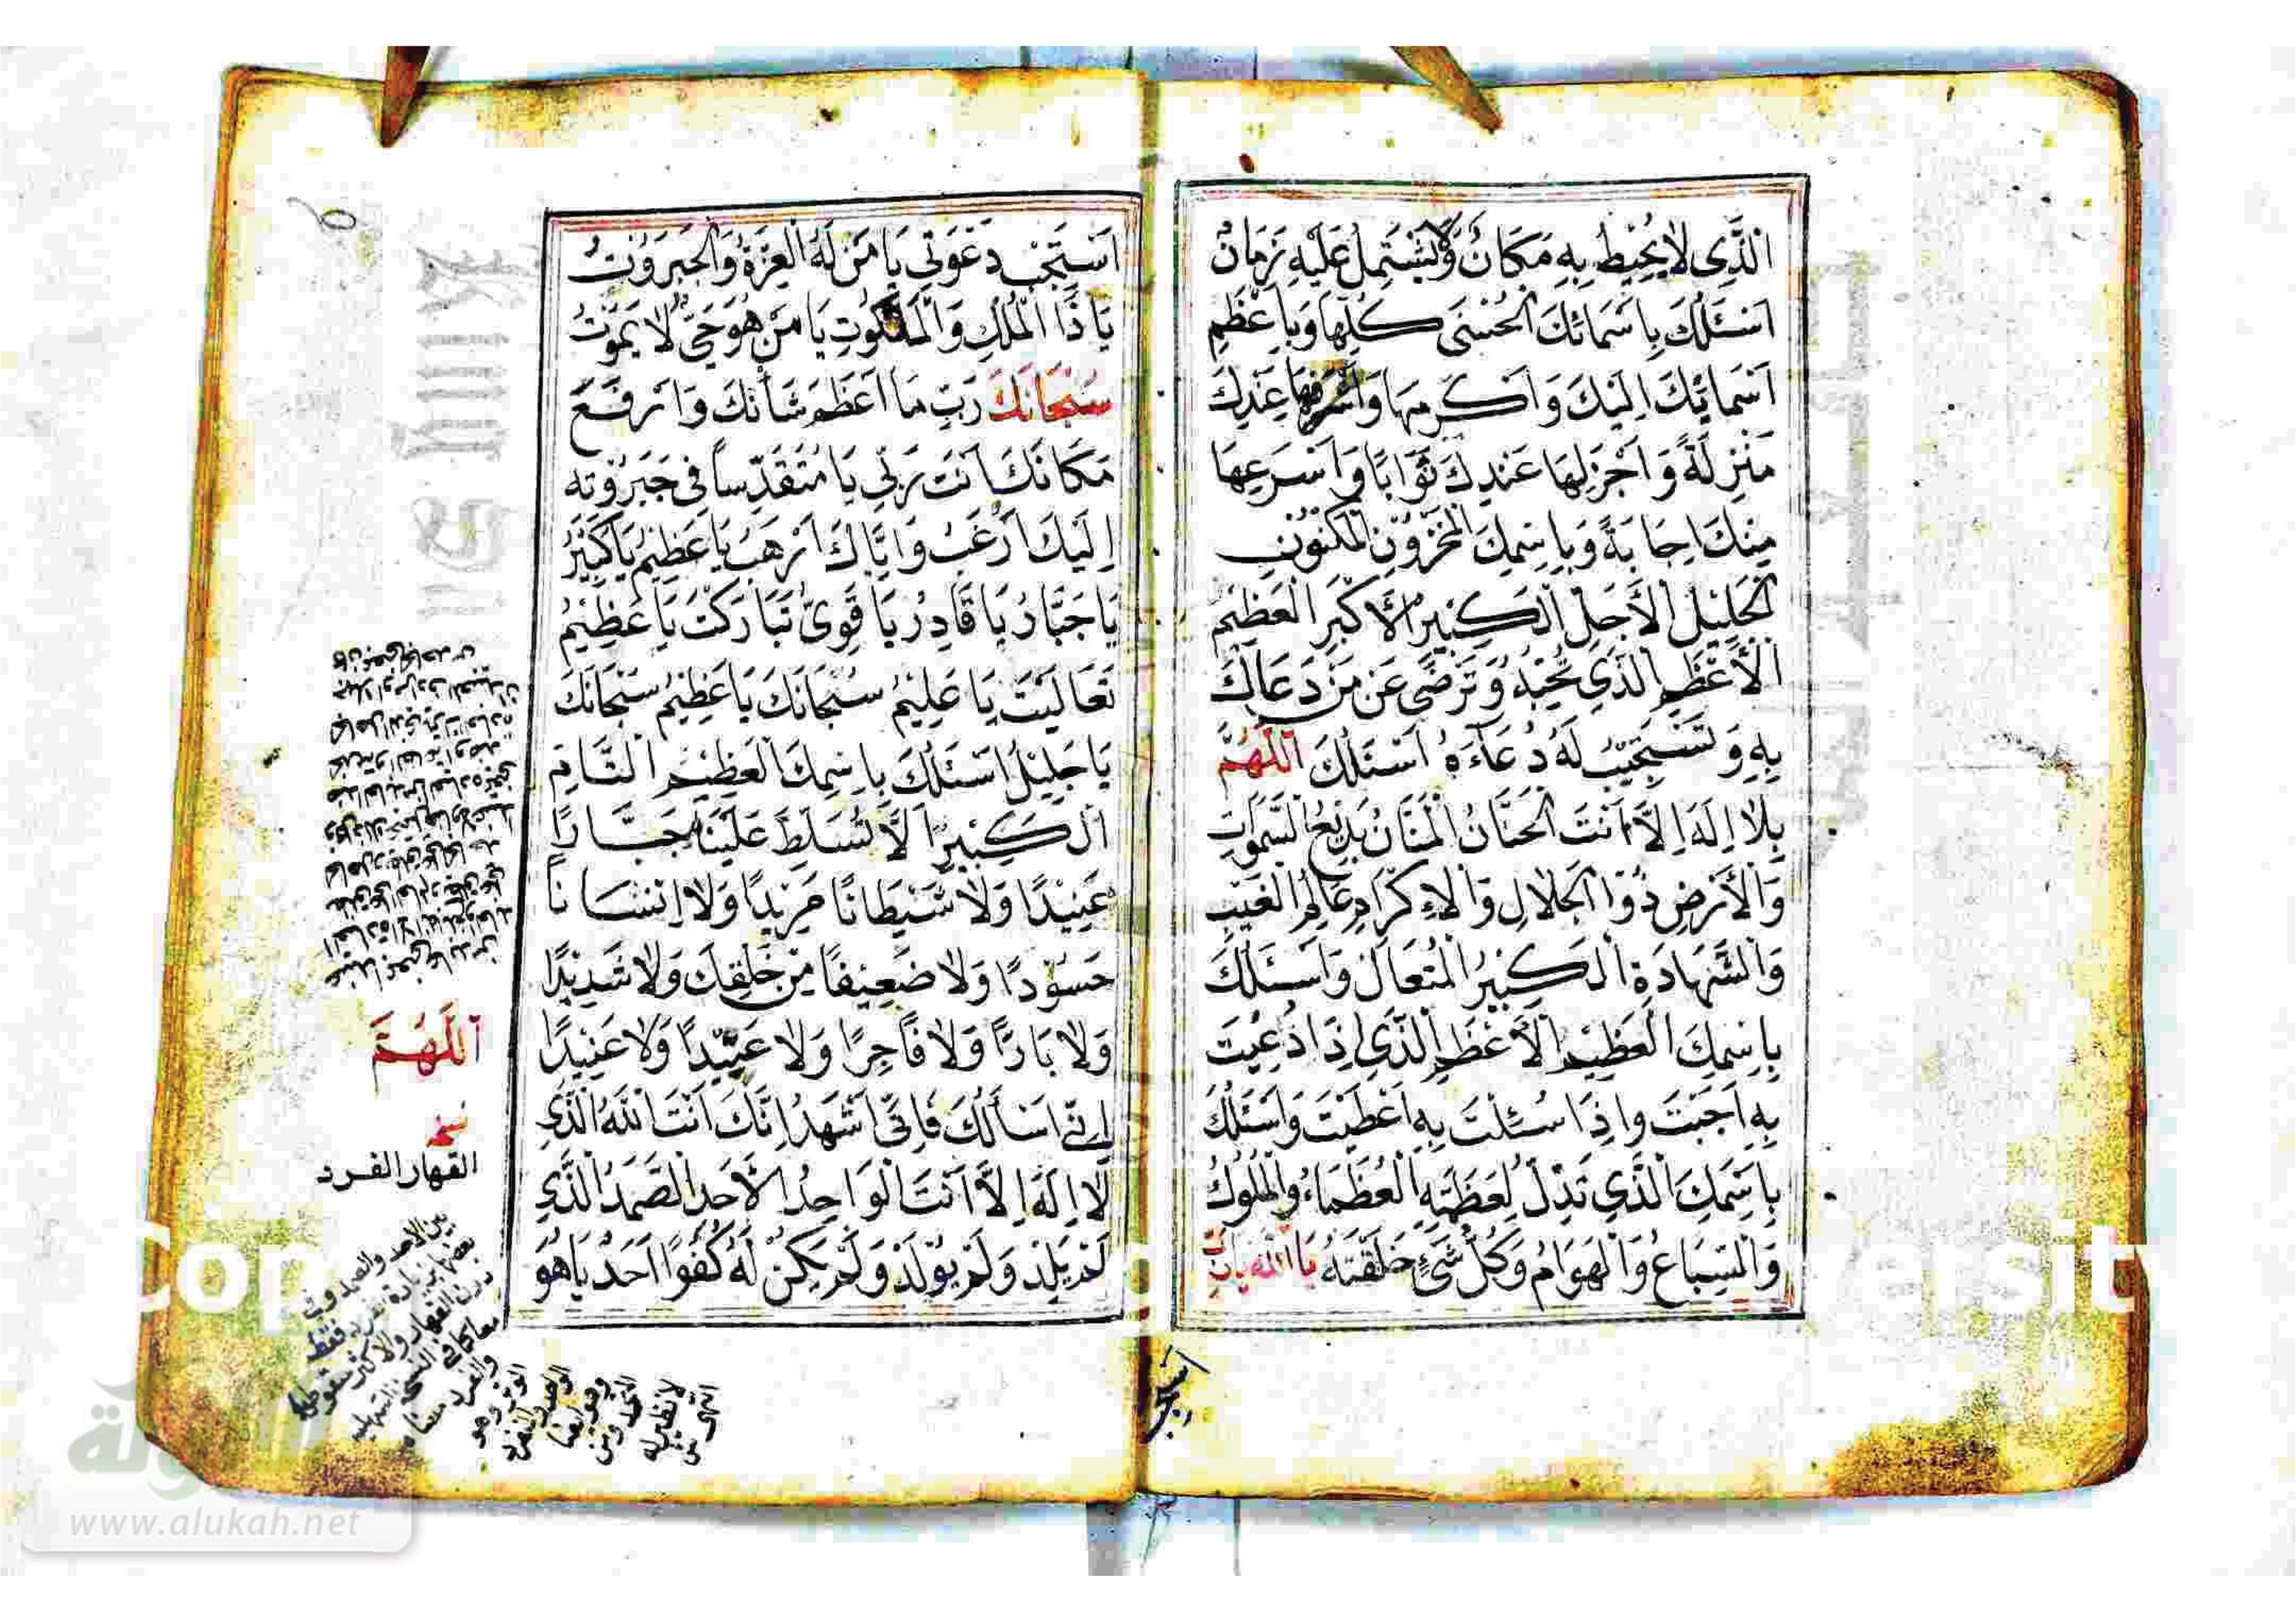 الَّذِي لَا يُحِيطُ بِهِ مَكَانٌ وَلَا يَشْتَمِلُ عَلَيْهِ زَمَانٌ
اَسْئَلُكَ بِاَسْمَائِكَ الْحُسْنَى كُلِّهَا وَبِاَعْظَمِ
اَسْمَائِكَ اِلَيْكَ وَاَكْرَمِهَا وَاَشْرَفِهَا عِنْدَكَ
مَنْزِلَةً وَاَجْزَلِهَا عِنْدَكَ ثَوَابًا وَاَسْرَعِهَا
مِنْكَ اِجَابَةً وَبِاسْمِكَ الْمَخْزُونِ الْمَكْنُونِ
الْجَلِيلِ الْأَجَلِّ الْكَبِيرِ الْأَكْبَرِ الْعَظِيمِ
الْأَعْظَمِ الَّذِي تُحِبُّهُ وَتَرْضَى عَنْ مَنْ دَعَاكَ
بِهِ وَتَسْتَجِيبُ لَهُ دُعَاءَهُ اَسْئَلُكَ اَللّٰهُمَّ
بِلَا اِلٰهَ اِلَّا اَنْتَ الْحَنَّانُ الْمَنَّانُ بَدِيعُ السَّمٰوَاتِ
وَالْأَرْضِ ذُو الْجَلَالِ وَالْاِكْرَامِ عَالِمُ الْغَيْبِ
وَالشَّهَادَةِ الْكَبِيرُ الْمُتَعَالِ وَاَسْئَلُكَ
بِاسْمِكَ الْعَظِيمِ الْأَعْظَمِ الَّذِي اِذَا دُعِيتَ
بِهِ اَجَبْتَ وَاِذَا سُئِلْتَ بِهِ اَعْطَيْتَ وَاَسْئَلُكَ
بِاسْمِكَ الَّذِي تَذِلُّ لِعَظَمَتِهِ الْعُظَمَاءُ وَالْمُلُوكُ
وَالسِّبَاعُ وَالْهَوَامُّ وَكُلُّ شَيْءٍ خَلَقْتَهُ يَا اَللّٰهُ يَا رَبِّ
اسْتَجِبْ
اسْتَجِبْ دَعْوَتِي يَا مَنْ لَهُ الْعِزَّةُ وَالْجَبَرُوتُ
يَا ذَا الْمُلْكِ وَالْمَلَكُوتِ يَا مَنْ هُوَ حَيٌّ لَا يَمُوتُ
سُبْحَانَكَ رَبِّ مَا اَعْظَمَ شَأْنَكَ وَاَرْفَعَ
مَكَانَكَ اَنْتَ رَبِّي يَا مُتَقَدِّسًا فِي جَبَرُوتِهِ
اِلَيْكَ اَرْغَبُ وَاِيَّاكَ اَرْهَبُ يَا عَظِيمُ يَا كَبِيرُ
يَا جَبَّارُ يَا قَادِرُ يَا قَوِيُّ تَبَارَكْتَ يَا عَظِيمُ
تَعَالَيْتَ يَا عَلِيمُ سُبْحَانَكَ يَا عَظِيمُ سُبْحَانَكَ
يَا جَلِيلُ اَسْئَلُكَ بِاسْمِكَ الْعَظِيمِ التَّامِّ
الْكَبِيرِ اَلَّا تُسَلِّطَ عَلَيْنَا جَبَّارًا
عَنِيدًا وَلَا شَيْطَانًا مَرِيدًا وَلَا اِنْسَانًا
حَسُودًا وَلَا ضَعِيفًا مِنْ خَلْقِكَ وَلَا شَدِيدًا
وَلَا بَارًّا وَلَا فَاجِرًا وَلَا عَبِيدًا وَلَا عَنِيدًا
اَللّٰهُمَّ
اِنِّي اَسْأَلُكَ فَاِنِّي اَشْهَدُ اَنَّكَ اَنْتَ اللّٰهُ الَّذِي
لَا اِلٰهَ اِلَّا اَنْتَ الْوَاحِدُ الْأَحَدُ الصَّمَدُ الَّذِي
لَمْ يَلِدْ وَلَمْ يُولَدْ وَلَمْ يَكُنْ لَهُ كُفُوًا اَحَدٌ يَا هُوَ
القهار الفرد
بين الاحد والصمد وفي
بعضها بزيادة الفرد فقط
دون القهار والاكثر سقوطهما
معا كما في النسخة السهلية
www.alukah.net